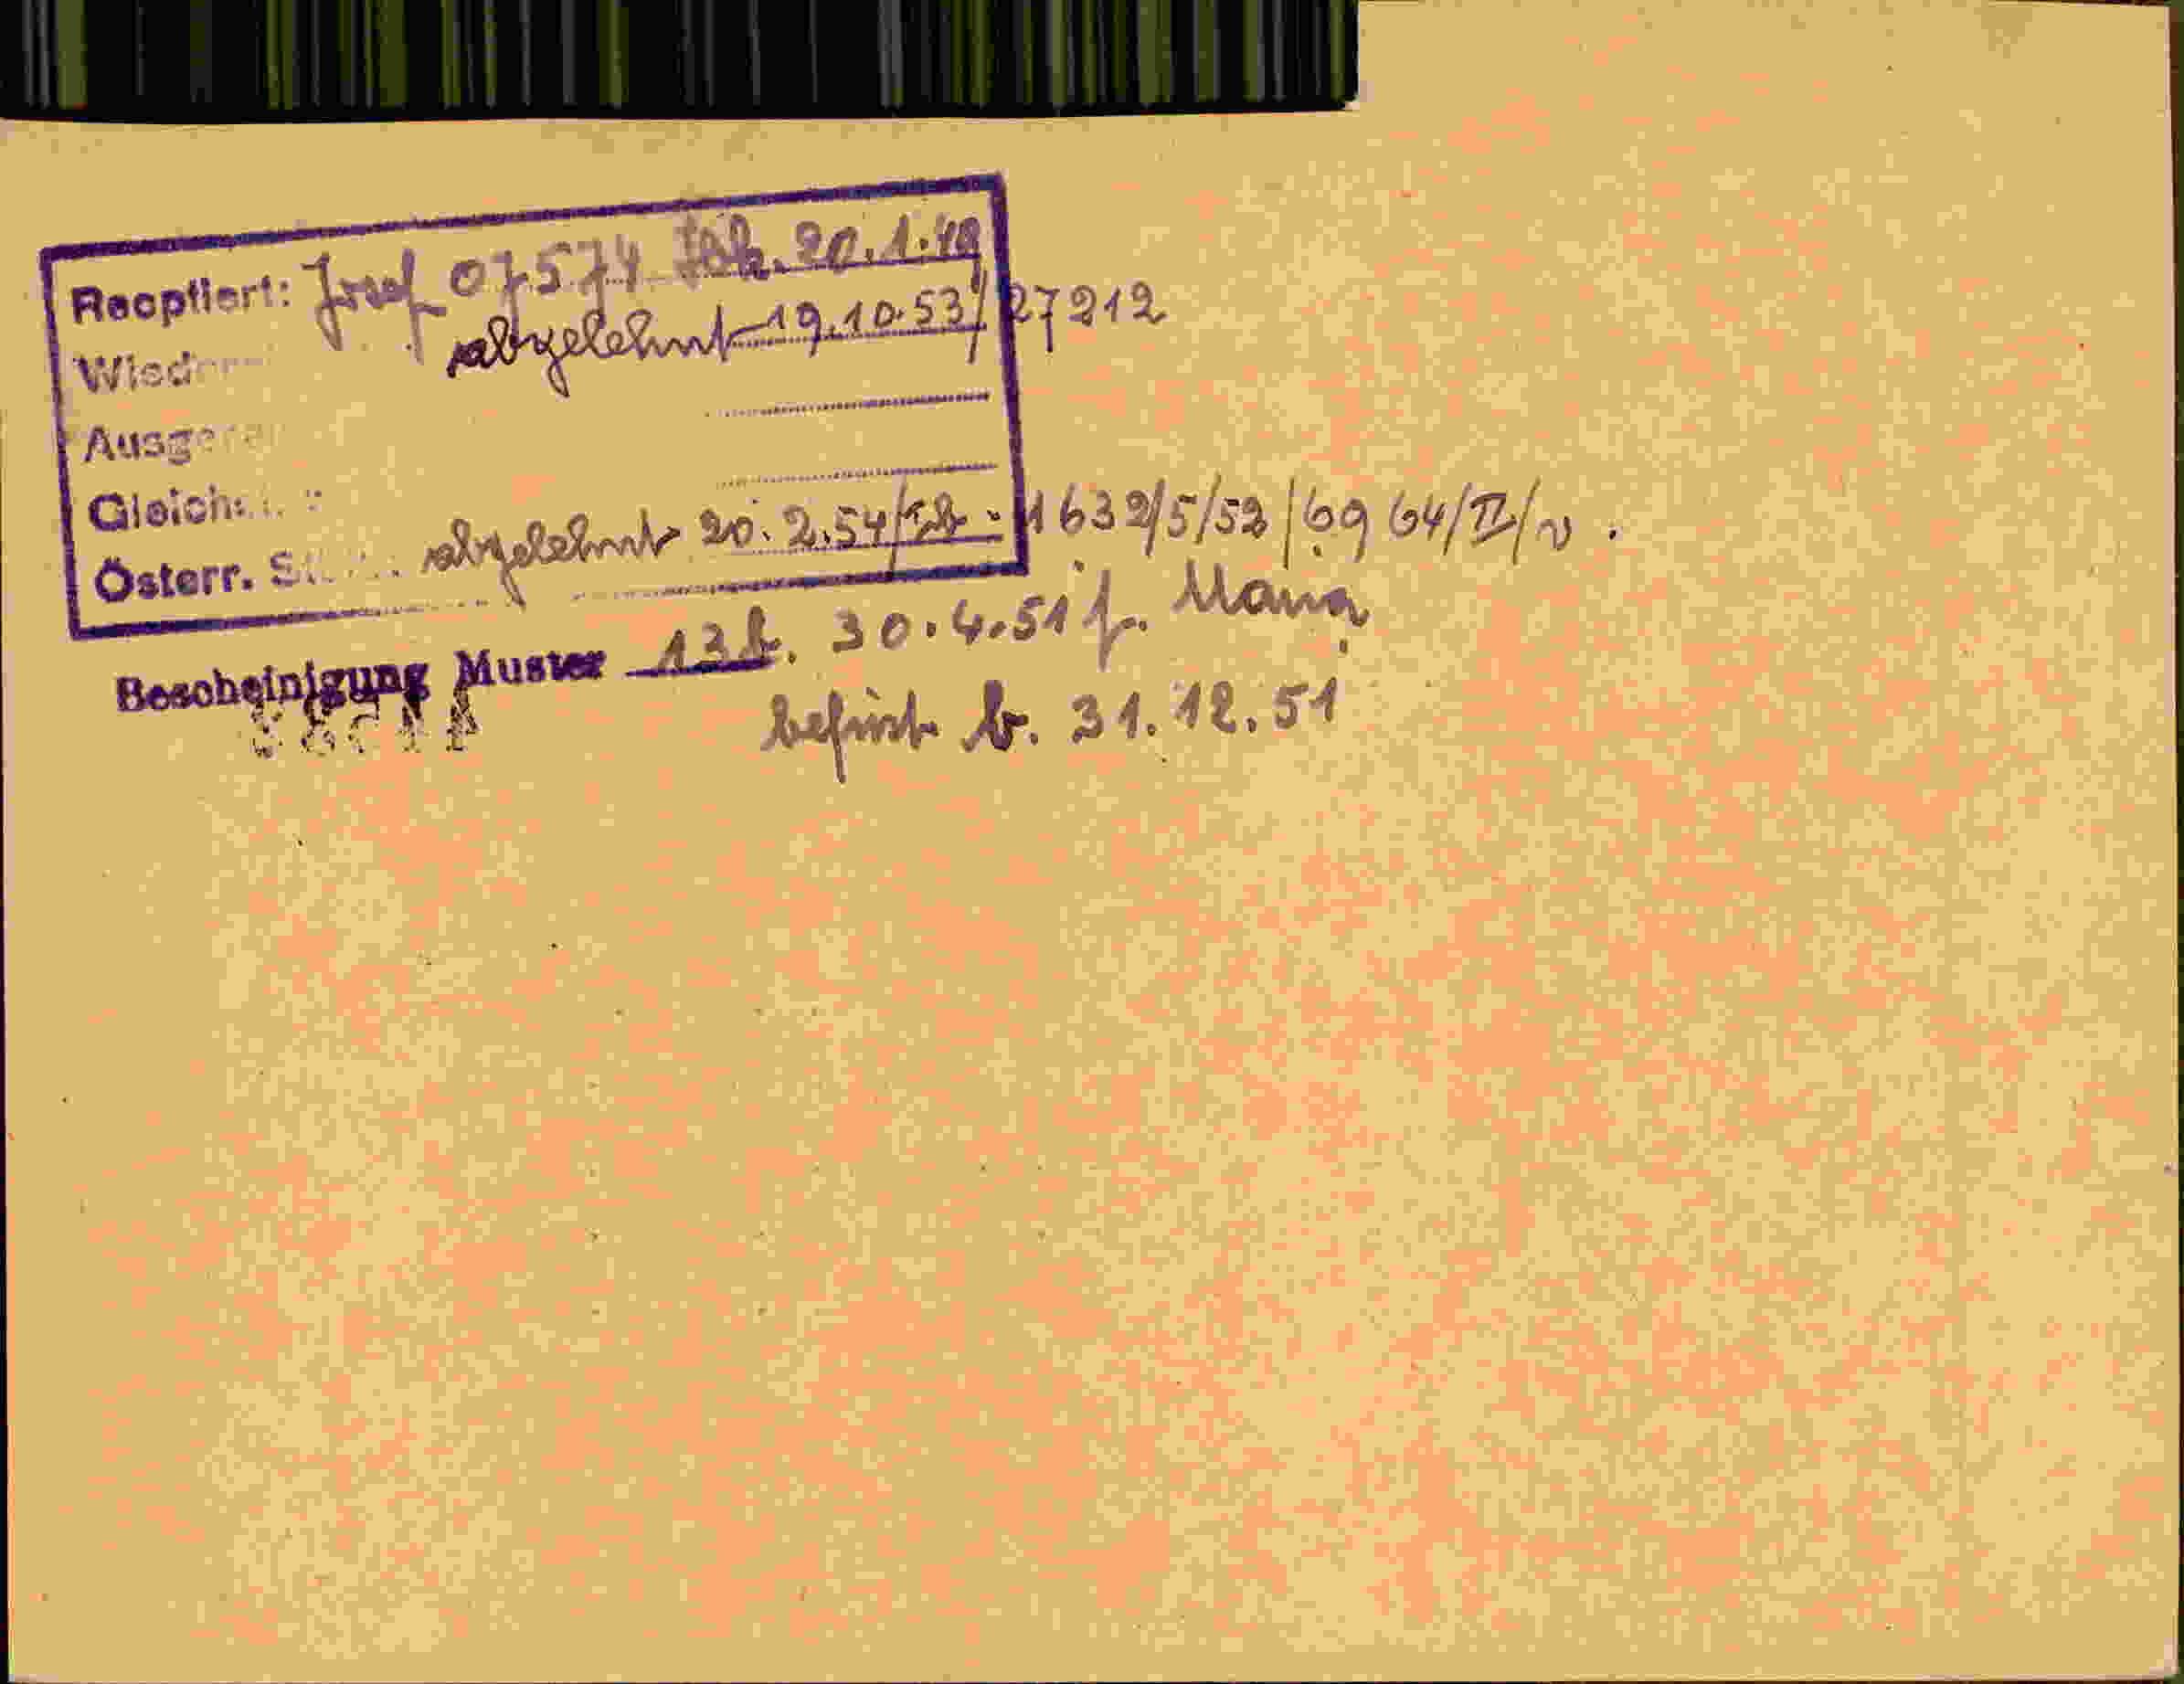 Reoptiert: Josef 07574 20.1.49
abgelehnt 19.10.53/27212
Gleich
Österr. St abgelehnt 20.2.54 1632/5/52/6964/II/v.
Bescheinigung Muster 13b. 30.4.51 f. Maria
befrist b. 31.12.51